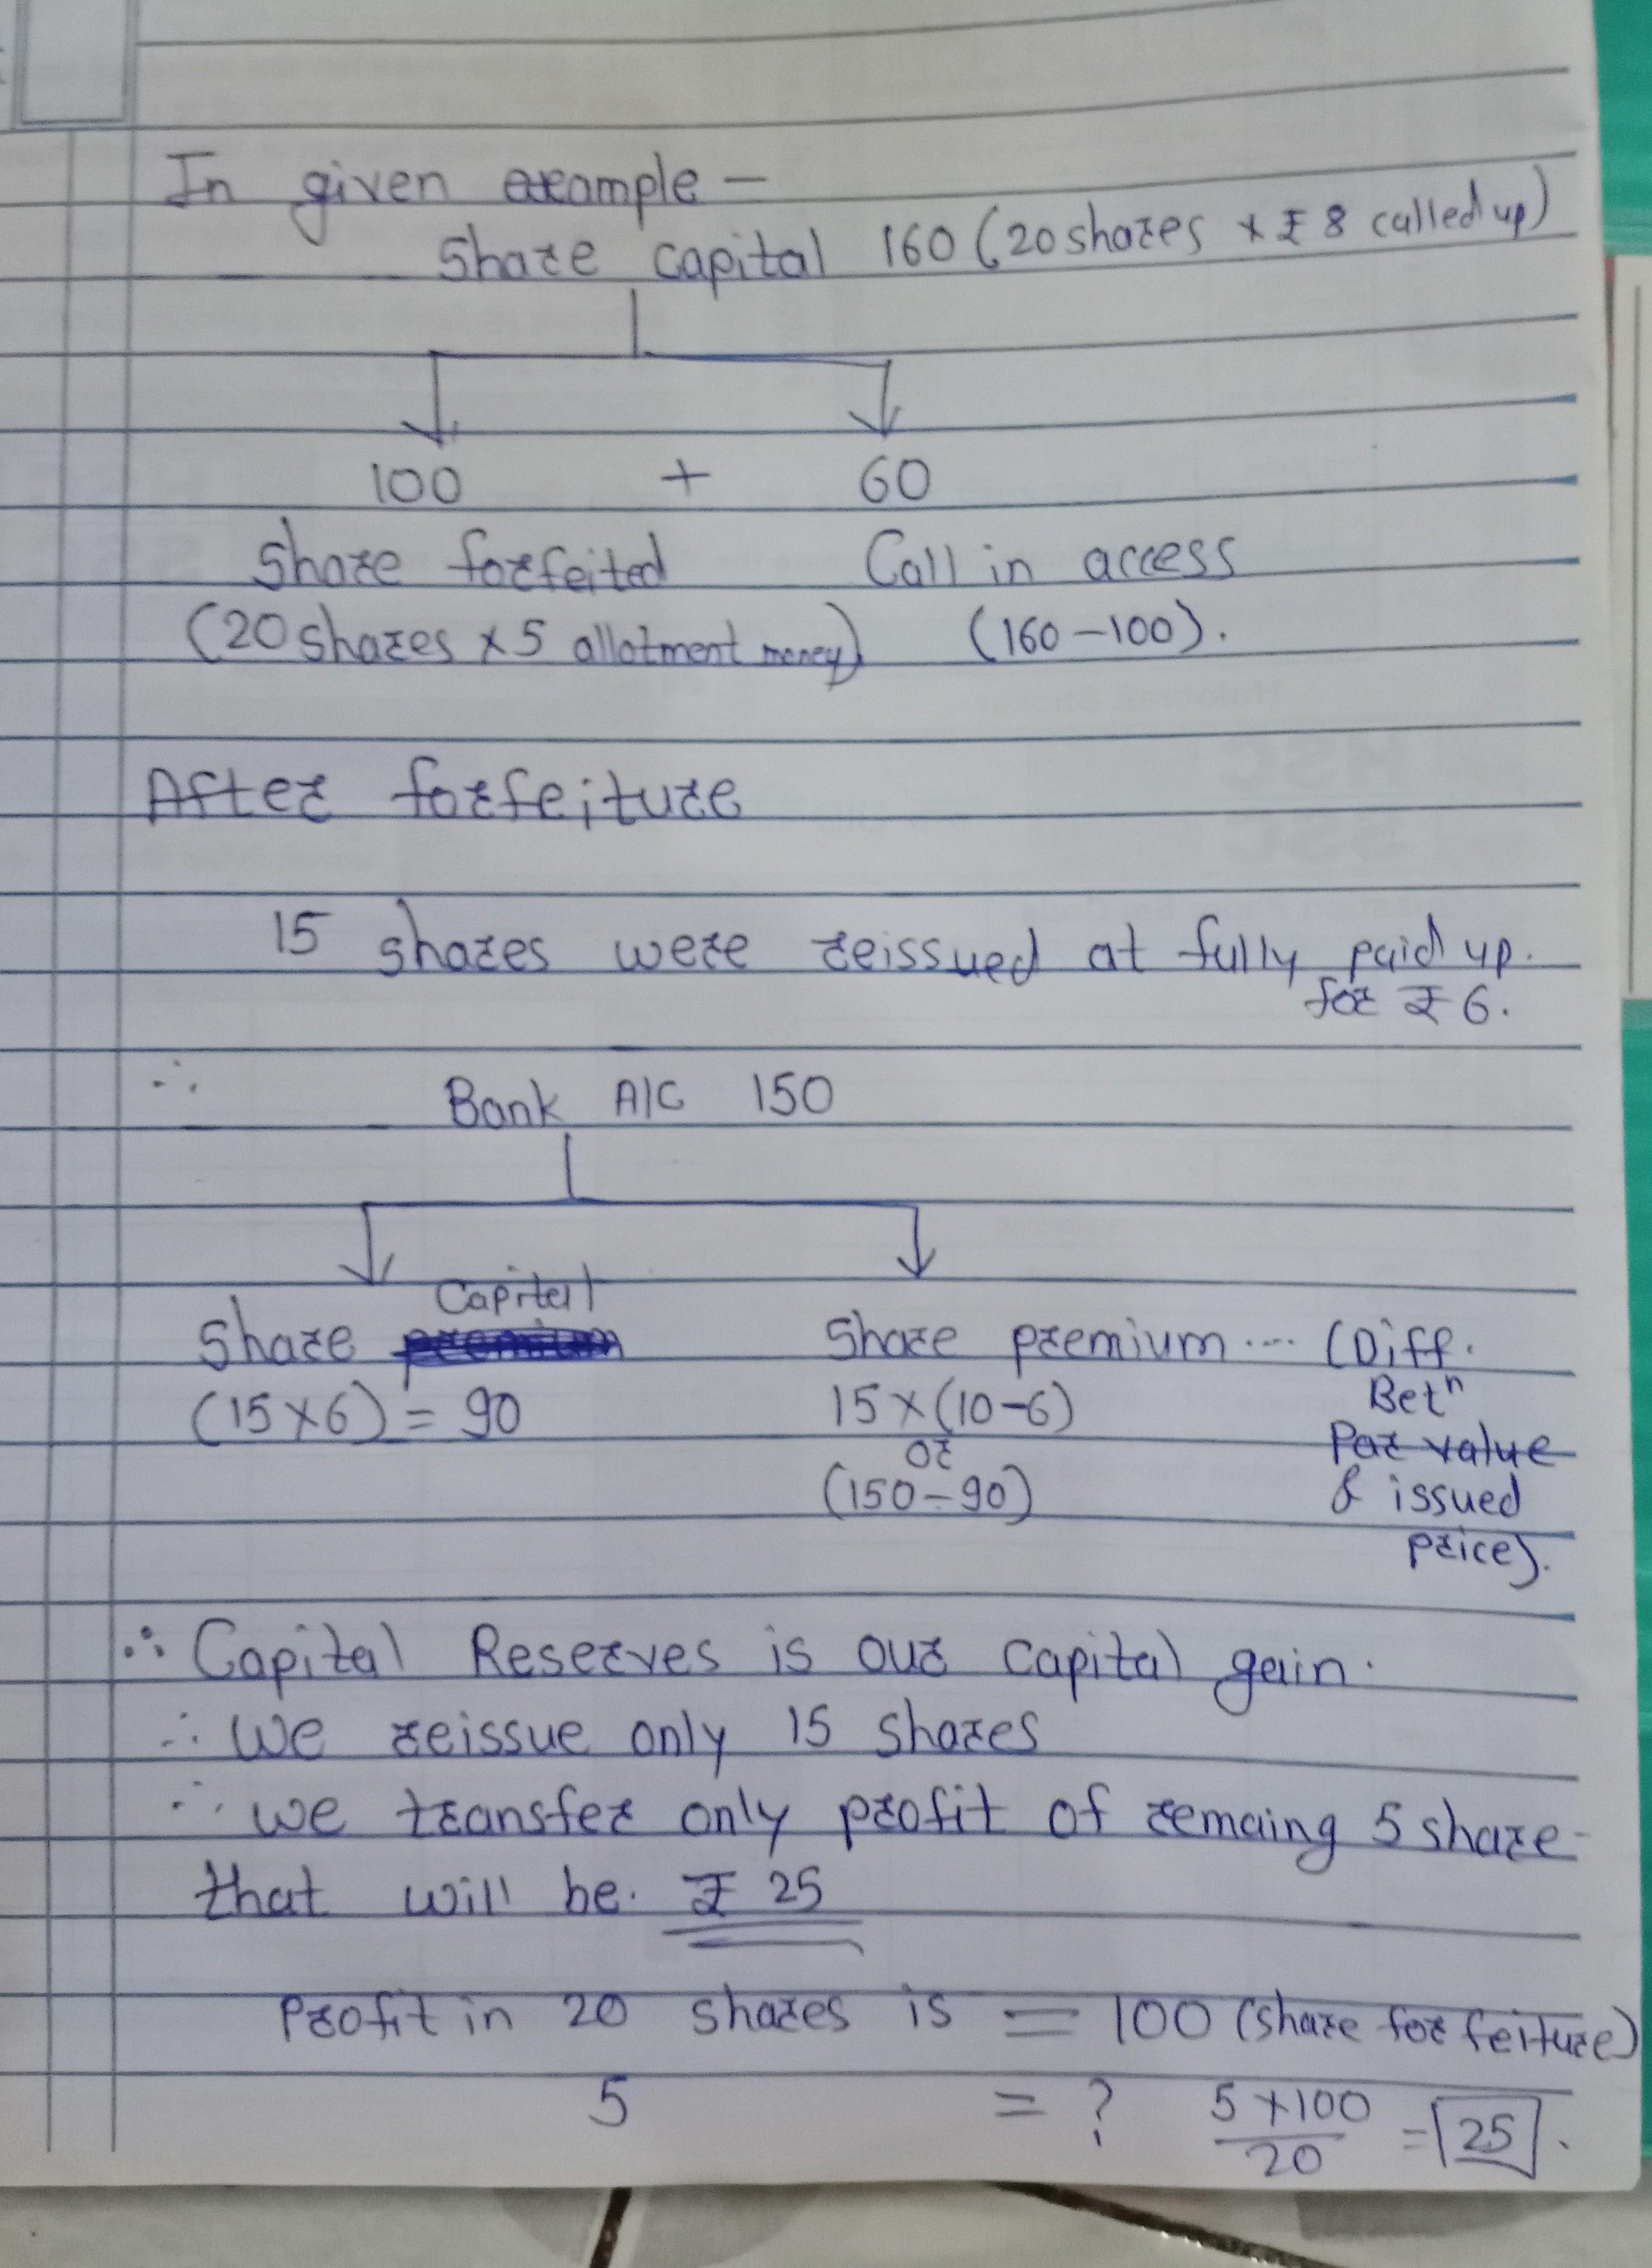 In given example -
Share capital 160 (20 shares × ₹ 8 called up)
100 + 60
Share forfeited Call in access
(20 shares × 5 allotment money) (160-100).
After forfeiture
15 shares were reissued at fully paid up.
for ₹ 6.
∴ Bank A/C 150
Capital
Share premium Share premium .... (Diff.
(15×6) = 90 15×(10-6) Betⁿ
or Par value
(150-90) & issued
price).
∴ Capital Reserves is our capital gain.
∴ We reissue only 15 shares
∴ we transfer only profit of remaing 5 share
that will be. ₹ 25
Profit in 20 shares is = 100 (share forfeiture)
5 = ? 5×100/20 = 25.